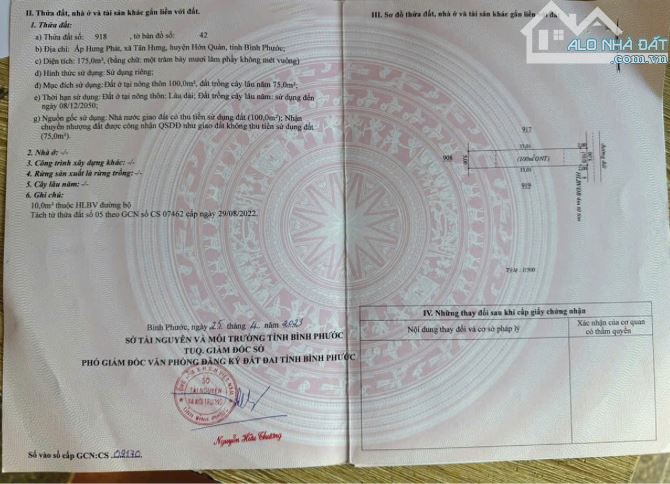 II. Thửa đất, nhà ở và tài sản khác gắn liền với đất.
1. Thửa đất:
a) Thửa đất số: 918 , tờ bản đồ số: 42
b) Địa chỉ: Ấp Hưng Phát, xã Tân Hưng, huyện Hớn Quản, tỉnh Bình Phước.
c) Diện tích: 175,0m², (bằng chữ: một trăm bảy mươi lăm phẩy không mét vuông)
d) Hình thức sử dụng: Sử dụng riêng;
đ) Mục đích sử dụng: Đất ở tại nông thôn 100,0m²; Đất trồng cây lâu năm 75,0m²;
e) Thời hạn sử dụng: Đất ở tại nông thôn: Lâu dài; Đất trồng cây lâu năm: sử dụng đến
ngày 08/12/2050;
g) Nguồn gốc sử dụng: Nhà nước giao đất có thu tiền sử dụng đất (100,0m²); Nhận
chuyển nhượng đất được công nhận QSDĐ như giao đất không thu tiền sử dụng đất
(75,0m²).
2. Nhà ở: -/-
3. Công trình xây dựng khác: -/-
4. Rừng sản xuất là rừng trồng: -/-
5. Cây lâu năm: -/-
6. Ghi chú:
10,0m² thuộc HLBV đường bộ
Tách từ thửa đất số 05 theo GCN số CS 07462 cấp ngày 29/08/2022.
Bình Phước, ngày 25 tháng 4 năm 2023
SỞ TÀI NGUYÊN VÀ MÔI TRƯỜNG TỈNH BÌNH PHƯỚC
TUQ. GIÁM ĐỐC SỞ
PHÓ GIÁM ĐỐC VĂN PHÒNG ĐĂNG KÝ ĐẤT ĐAI TỈNH BÌNH PHƯỚC
SỞ
TÀI NGUYÊN
VÀ MÔI TRƯỜNG
Nguyễn Hữu Thường
Số vào sổ cấp GCN: CS 09170
III. Sơ đồ thửa đất, nhà ở và tài sản khác gắn liền với đất
ALO NHÀ ĐẤT
.com.vn
917
35,01
908
5,00
(100m² ONT)
35,01
919
đường đất
Tỷ lệ: 1/500
IV. Những thay đổi sau khi cấp giấy chứng nhận
Nội dung thay đổi và cơ sở pháp lý
Xác nhận của cơ quan
có thẩm quyền